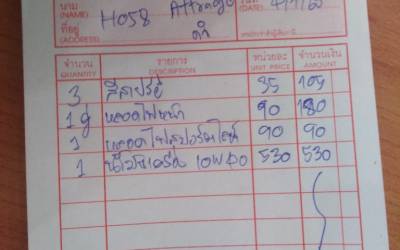 นาม HO58 Attrage วันที่
(NAME) (DATE)
ที่อยู่ ดำ
(ADDRESS)
จำนวน รายการ หน่วยละ จำนวนเงิน
QUANTITY DESCRIPTION UNIT PRICE AMOUNT
3 สีสเปรย์ 35 105
1 คู่ หลอดไฟหน้า 90 180
1 หลอดไฟสปอร์ตไลน์ 90 90
1 น้ำมันเครื่อง 10W40 530 530